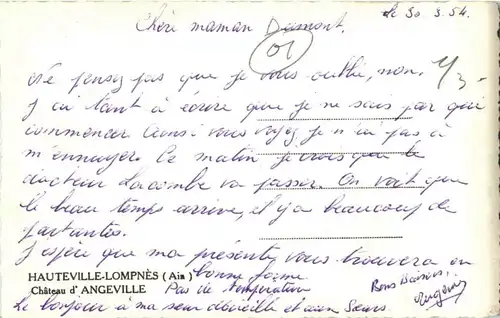 le 30.3.54.
Chère maman Dumont.
01
Ne pensez pas que je vous oublie, non.
J'ai tant à écrire que je ne sais par qui
commencer. Ainsi vous voyez je n'ai pas à
m'ennuyer. Ce matin je crois que le
docteur Lacombe va passer. On voit que
le beau temps arrive, et y'a beaucoup de
partantes.
J'espère que ma présente vous trouvera en
bonne forme
HAUTEVILLE-LOMPNÈS (Ain)
Château d'ANGEVILLE
Pas de température
Bons Baisers.
Le bonjour à ma sœur et aux Sœurs.